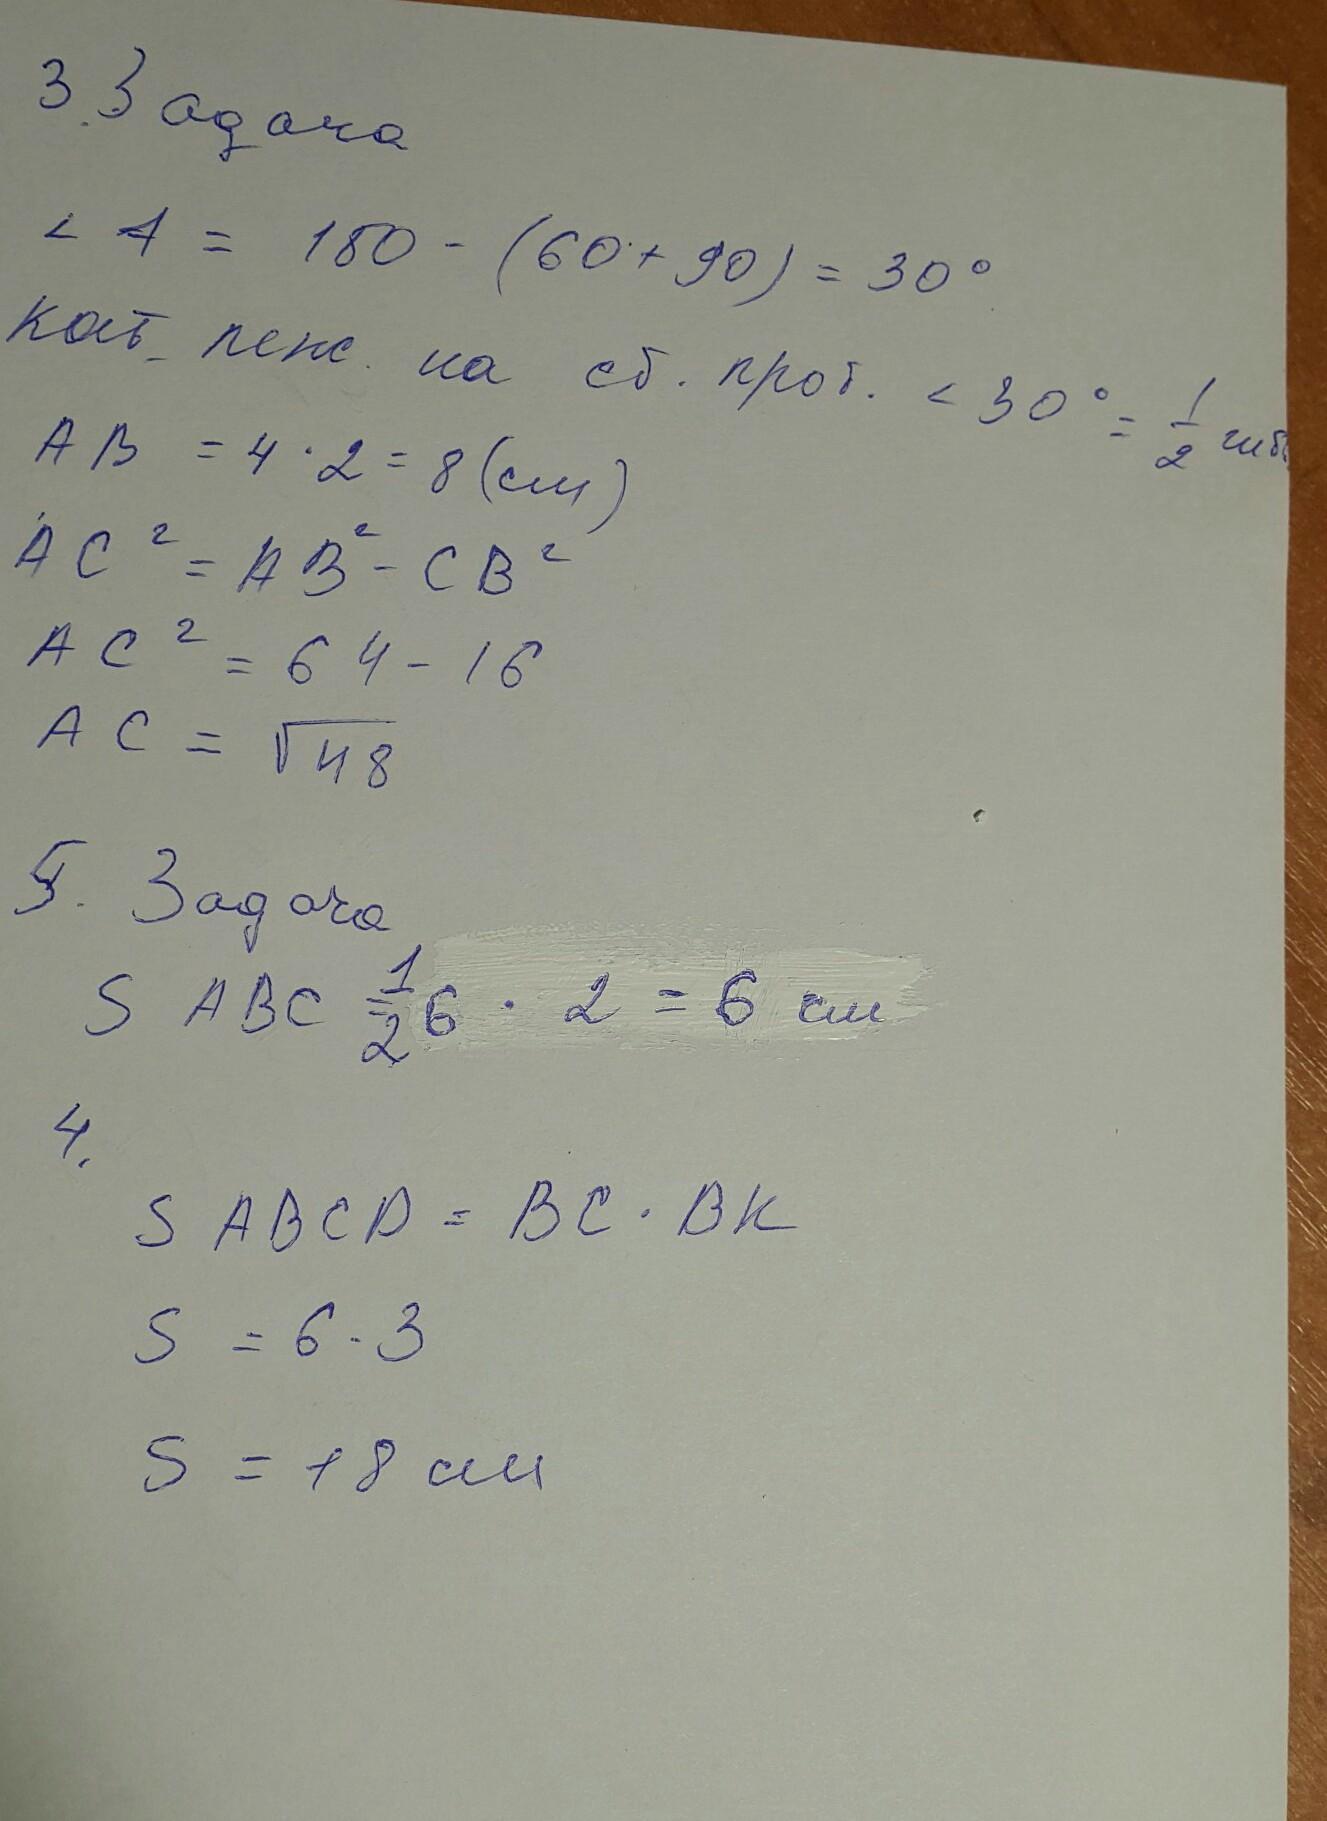 3. Задача
< A = 180 - (60 + 90) = 30°
Кат. леж. на ст. прот. < 30° = 1/2 гипот.
AB = 4 · 2 = 8 (см)
AC² = AB² - CB²
AC² = 64 - 16
AC = √48
5. Задача
S ABC = 1/2 6 · 2 = 6 см
4.
S ABCD = BC · BK
S = 6 · 3
S = 18 см